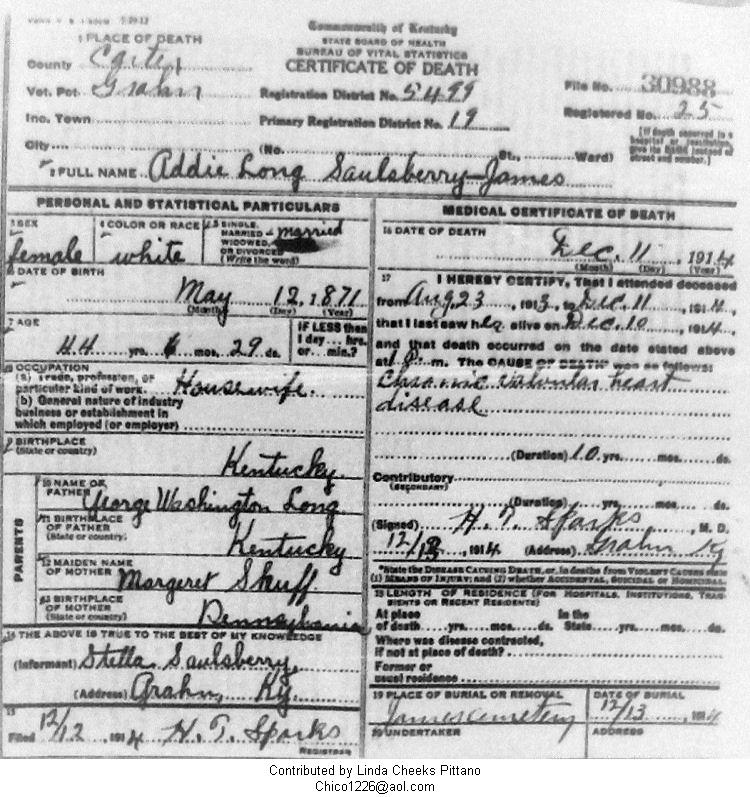 Commonwealth of Kentucky
STATE BOARD OF HEALTH
BUREAU OF VITAL STATISTICS
CERTIFICATE OF DEATH
1 PLACE OF DEATH
County Carter
Vot. Pct. Grahn
Inc. Town
City
Registration District No. 5499
Primary Registration District No. 19
(No. St., Ward)
File No. 30988
Registered No. 25
[If death occurred in a
hospital or institution,
give its NAME instead of
street and number.]
2 FULL NAME Addie Long Saulsberry-James
PERSONAL AND STATISTICAL PARTICULARS
3 SEX
female
4 COLOR OR RACE
white
5 SINGLE,
MARRIED married
WIDOWED,
OR DIVORCED
(Write the word)
6 DATE OF BIRTH
May 12, 1871
(Month) (Day) (Year)
7 AGE
44 yrs. 6 mos. 29 ds.
IF LESS than
1 day... hrs.
or... min.?
8 OCCUPATION
(a) Trade, profession, or
particular kind of work. Housewife.
(b) General nature of industry
business or establishment in
which employed (or employer)
9 BIRTHPLACE
(State or country)
Kentucky.
PARENTS
10 NAME OF
FATHER George Washington Long
11 BIRTHPLACE
OF FATHER
(State or country)
Kentucky
12 MAIDEN NAME
OF MOTHER Margeret Skuff.
13 BIRTHPLACE
OF MOTHER
(State or country)
Pennsylvania
14 THE ABOVE IS TRUE TO THE BEST OF MY KNOWLEDGE
(Informant) Stella Saulsberry,
(Address) Grahn, Ky.
15
Filed 12/12, 1914 H. T. Sparks
REGISTRAR
MEDICAL CERTIFICATE OF DEATH
16 DATE OF DEATH
Dec. 11, 1914
(Month) (Day) (Year)
17 I HEREBY CERTIFY, That I attended deceased
from Aug 23, 1913, to Dec. 11, 1914,
that I last saw her alive on Dec. 10, 1914,
and that death occurred on the date stated above
at 1 P. m. The CAUSE OF DEATH* was as follows:
Chronic valvular heart
disease
(Duration) 10 yrs. mos. ds.
Contributory
(SECONDARY)
(Duration) yrs. mos. ds.
(Signed) H. T. Sparks, M. D.
1914 (Address) Grahn Ky
*State the DISEASE CAUSING DEATH, or, in deaths from VIOLENT CAUSES state
(1) MEANS OF INJURY; and (2) whether ACCIDENTAL, SUICIDAL or HOMICIDAL.
18 LENGTH OF RESIDENCE (FOR HOSPITALS, INSTITUTIONS, TRAN-
SIENTS OR RECENT RESIDENTS)
At place In the
of death yrs. mos. ds. State yrs. mos. ds.
Where was disease contracted,
if not at place of death?
Former or
usual residence
19 PLACE OF BURIAL OR REMOVAL
James cemetery
DATE OF BURIAL
12/13, 1914
20 UNDERTAKER
ADDRESS
Contributed by Linda Cheeks Pittano
Chico1226@aol.com